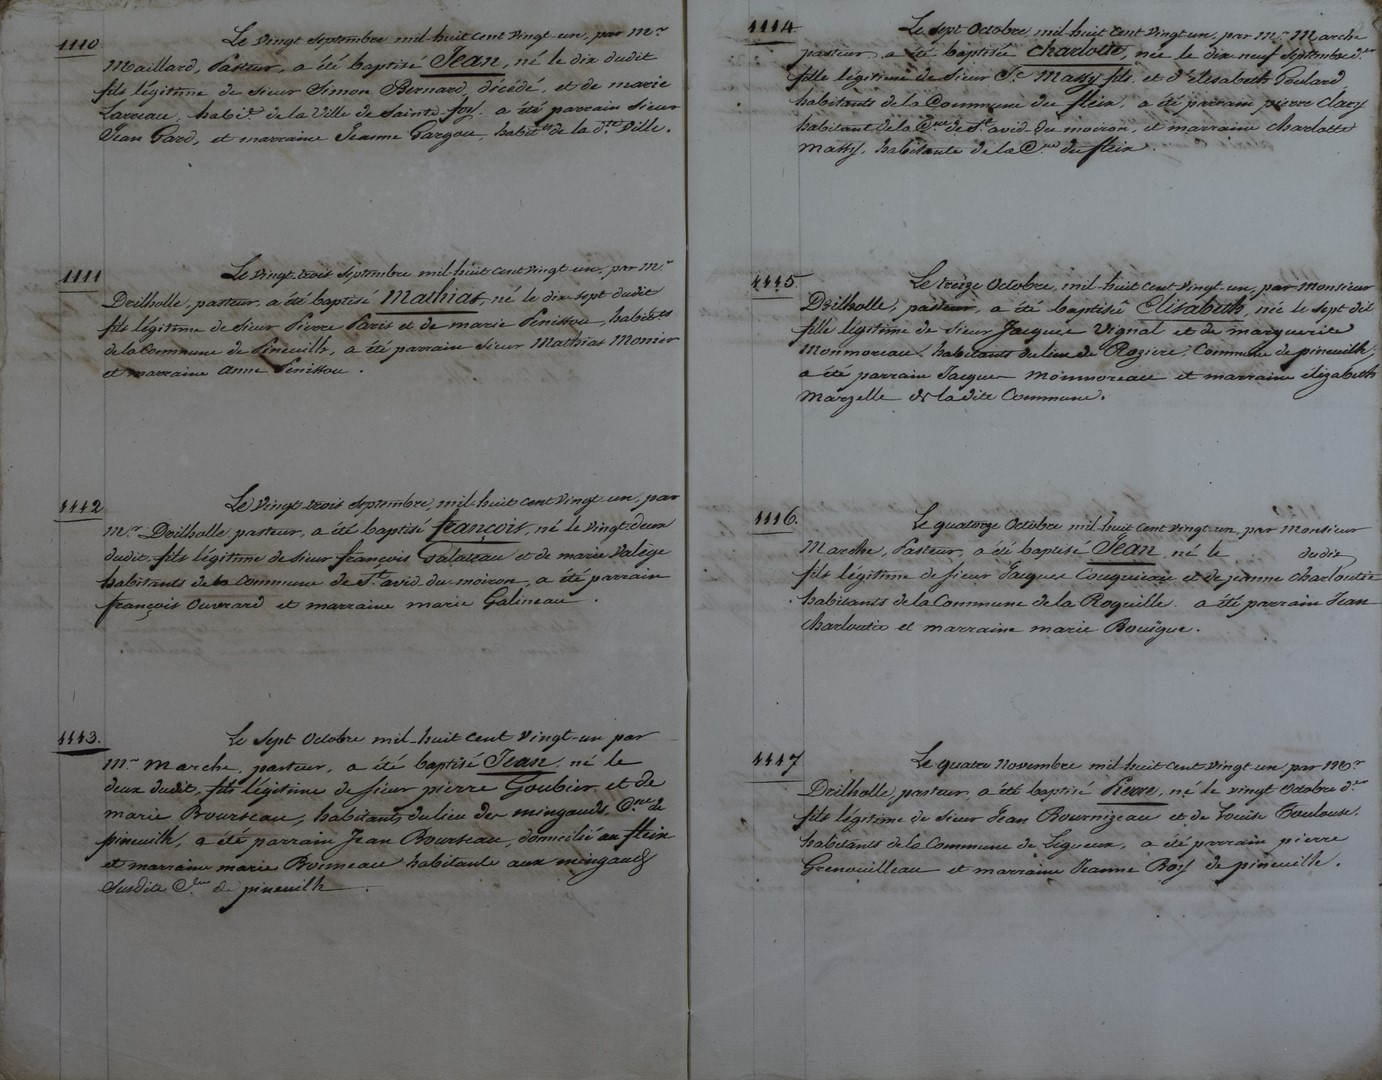 1110
Le vingt Septembre mil-huit cent vingt-un, par Mr
Maillard, Pasteur, a été baptisé Jean, né le dix dudit
fils légitime de Sieur Simon Bernard, décédé, et de marie
Larreau, habit. de la Ville de Sainte-foy. a été parrain Sieur
Jean Gard, et marraine Jeanne Gargou, habit.ts de la d.ite Ville.
1111
Le Vingt-trois Septembre mil-huit cent vingt-un, par Mr
Drilholle, pasteur, a été baptisé Mathias, né le dix-sept dudit
fils légitime de Sieur Pierre Paris et de marie Penissou, habitts
de la Commune de Pineuilh, a été parrain Sieur Mathias Monier
et marraine anne Penissou.
1112
Le Vingt-trois Septembre, mil-huit cent vingt-un, par
Mr Drilholle, pasteur, a été baptisé françois, né le vingt-deux
dudit, fils légitime de Sieur françois et de marie Valège
habitants de la Commune de St avid du moiron, a été parrain
françois Ouvrard et marraine marie Galineau.
1113.
Le Sept Octobre mil-huit cent Vingt-un par
Mr Marche, pasteur, a été baptisé Jean, né le
deux dudit, fils légitime de Sieur pierre Goubier et de
marie Bourseau, habitants du lieu des mingauds, C.ne de
pineuilh, a été parrain Jean Bourseau, domicilié au fleix
et marraine marie Bonneau habitante aux mingauds
Susdite C.ne de pineuilh.
1114
Le Sept Octobre mil-huit cent vingt un, par Mr Marche
pasteur, a été baptisée charlotte, née le dix neuf Septembre d.er
fille légitime de Sieur Jn Massy fils, et d'elisabeth Goulard,
habitants de la Commune du fleix, a été parrain pierre Clary
habitant de la C.ne de St avid-du moiron, et marraine charlotte
Massy, habitante de la C.ne du fleix.
1115
Le treize Octobre, mil-huit cent vingt-un, par Monsieur
Drilholle, pasteur, a été baptisée Elisabeth, née le Sept dit
fille légitime de Sieur Jacques Vignal et de marguerite
Monmoreau, habitants du lieu de Roziere, Commune de pineuilh,
a été parrain Jacques Monmoreau et marraine élizabeth
Marzelle de la dite Commune.
1116.
Le quatorze Octobre mil-huit cent vingt-un, par Monsieur
Marche, Pasteur, a été baptisé Jean, né le dudit
fils légitime de Sieur Jacques Couquieau et de jeanne charloutie
habitants de la Commune de la Roquille. a été parrain Jean
charloutie et marraine marie Bouïgue.
1117
Le quatre Novembre mil-huit cent vingt-un par Mr
Drilholle, pasteur, a été baptisé Pierre, né le vingt Octobre d.er
fils légitime de Sieur Jean Bournizeau et de Louise Toulouse,
habitants de la Commune de Ligueux, a été parrain pierre
Grenouilleau et marraine Jeanne Roy de pineuilh.